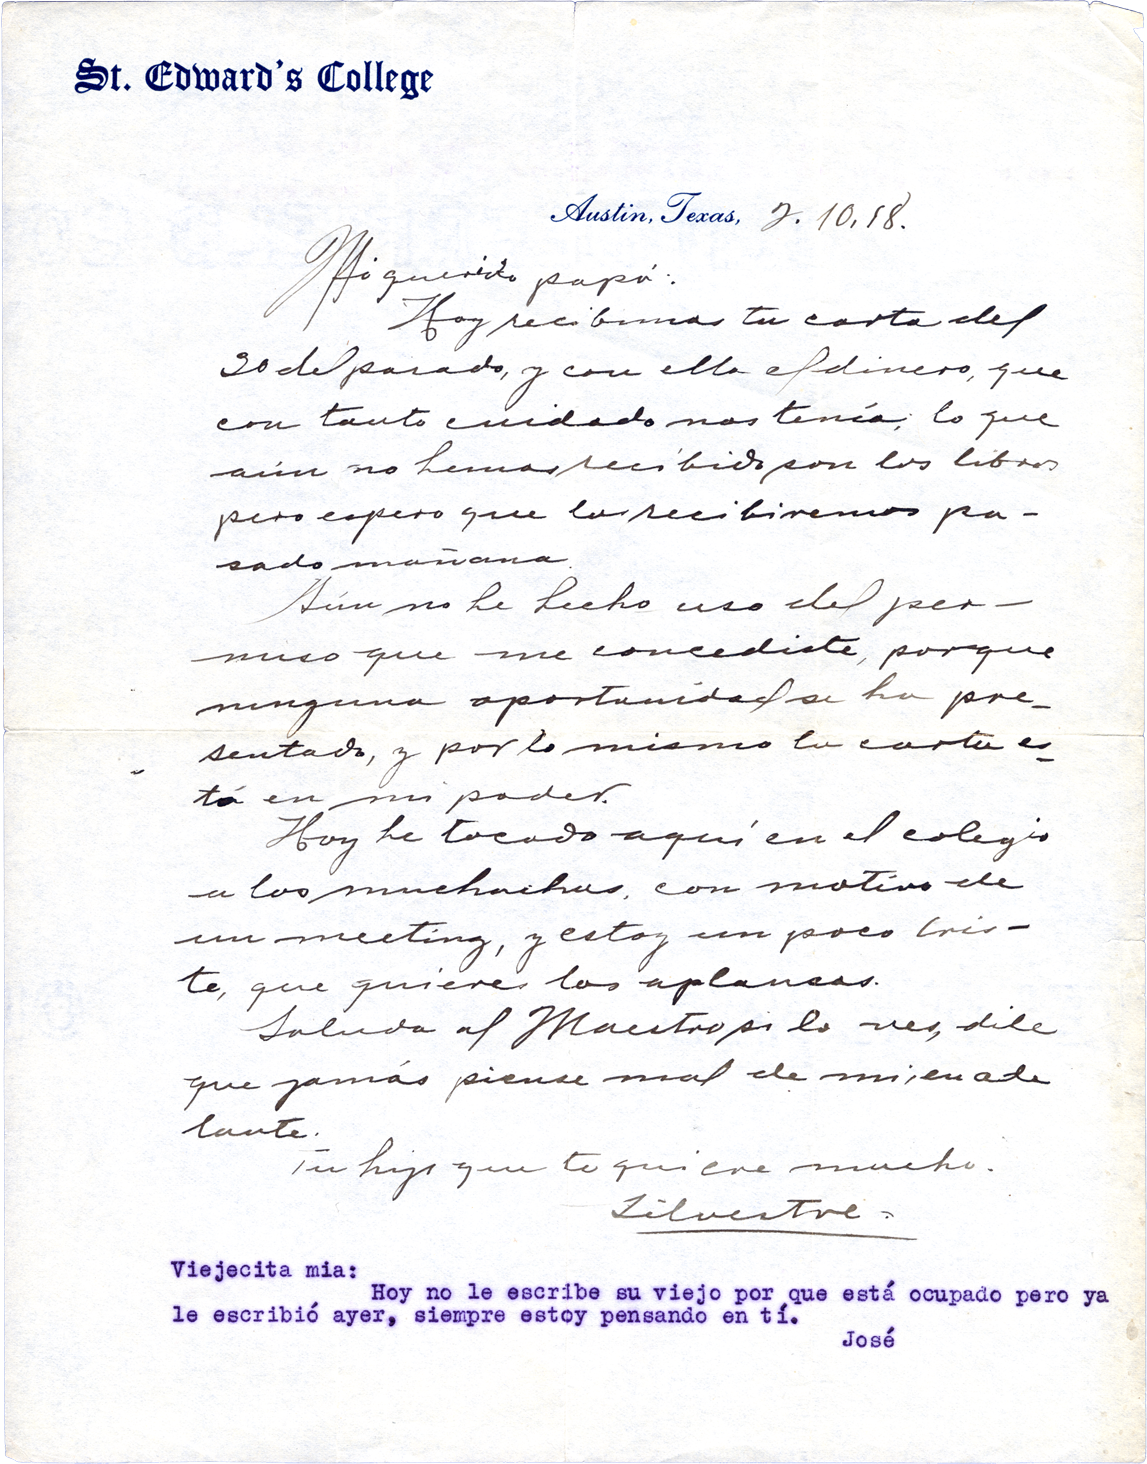 St. Edward's College
Austin, Texas, 2. 10. 18.
Mi querido papá:
Hoy recibimos tu carta del
30 del pasado, y con ella el dinero, que
con tanto cuidado nos tenía; lo que
aún no hemos recibido son los libros
pero espero que los recibiremos pa-
sado mañana.
Aún no he hecho uso del per-
miso que me concediste, porque
ninguna oportunidad se ha pre-
sentado, y por lo mismo la carta es-
tá en mi poder.
Hoy he tocado aquí en el colegio
a los muchachos, con motivo de
un meeting, y estoy un poco tris-
te, que quieres los aplausos.
Saluda al Maestro si lo ves, dile
que jamás piense mal de mi, en ade
lante.
Tu hijo que te quiere mucho.
Silvestre-
Viejecita mia:
Hoy no le escribe su viejo por que está ocupado pero ya
le escribió ayer, siempre estoy pensando en tí.
José